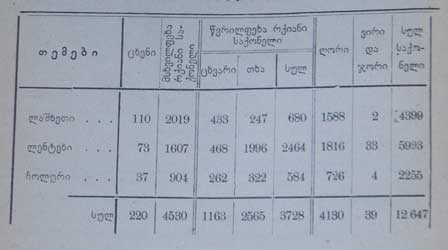 თემები ცხენი მსხვილფეხა რქიანი საქონელი წვრილფეხა რქიანი საქონელი ღორი ვირი და ჯორი სულ საქონელი
ცხვარი თხა სულ
ლაშხეთი . . . 110 2019 433 247 680 1588 2 4399
ლენტეხი . . . 73 1607 468 1996 2464 1816 33 5993
ჩოლური . . . 37 904 262 322 584 726 4 2255
სულ 220 4530 1163 2565 3728 4130 39 12.647